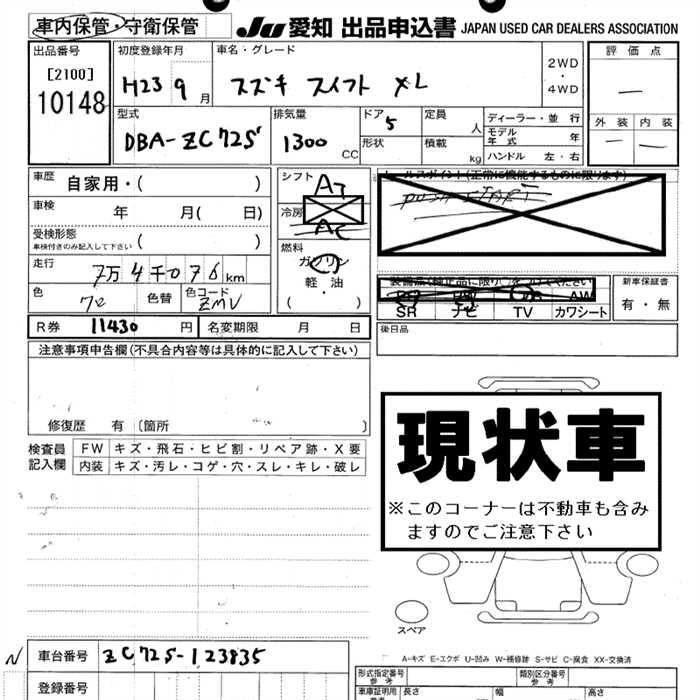 車内保管・守衛保管 JU 愛知 出品申込書 JAPAN USED CAR DEALERS ASSOCIATION
出品番号 初度登録年月 車名・グレード 評価点
[2100]
10148
H23 9月 スズキ スイフト XL 2WD・4WD —
型式 排気量 ドア 定員 ディーラー・並行 外装 内装
DBA-ZC72S 1300 CC 5 人 モデル年式 年 — —
形状 積載 kg ハンドル 左・右
車歴 自家用・( ) シフト AT セールスポイント(正常に機能するものに限ります)
車検 年 月( 日) 冷房 AC PUSH START
受検形態
車検付きのみ記入して下さい ( )
燃料 ガソリン
軽油
( ・ )
走行 7万4千076km 装備品(純正品に限り)○をつけてください 新車保証書
色 色替 色コード ZMV AW 有・無
SR ナビ TV カワシート
R券 11430円 名変期限 月 日 後日品
注意事項申告欄(不具合内容等は具体的に記入して下さい)
修復歴 有 〔箇所 〕
現状車
※このコーナーは不動車も含みますのでご注意下さい
検査員記入欄 FW キズ・飛石・ヒビ割・リペア跡・X要
内装 キズ・汚レ・コゲ・穴・スレ・キレ・破レ
スペア
A-キズ E-エクボ U-凹み W-補修跡 S-サビ C-腐食 XX-交換済
N 車台番号 ZC72S-123835
登録番号
形式指定番号 参考 類別区分番号 参考
車庫証明用 参考 長さ 幅 高さ